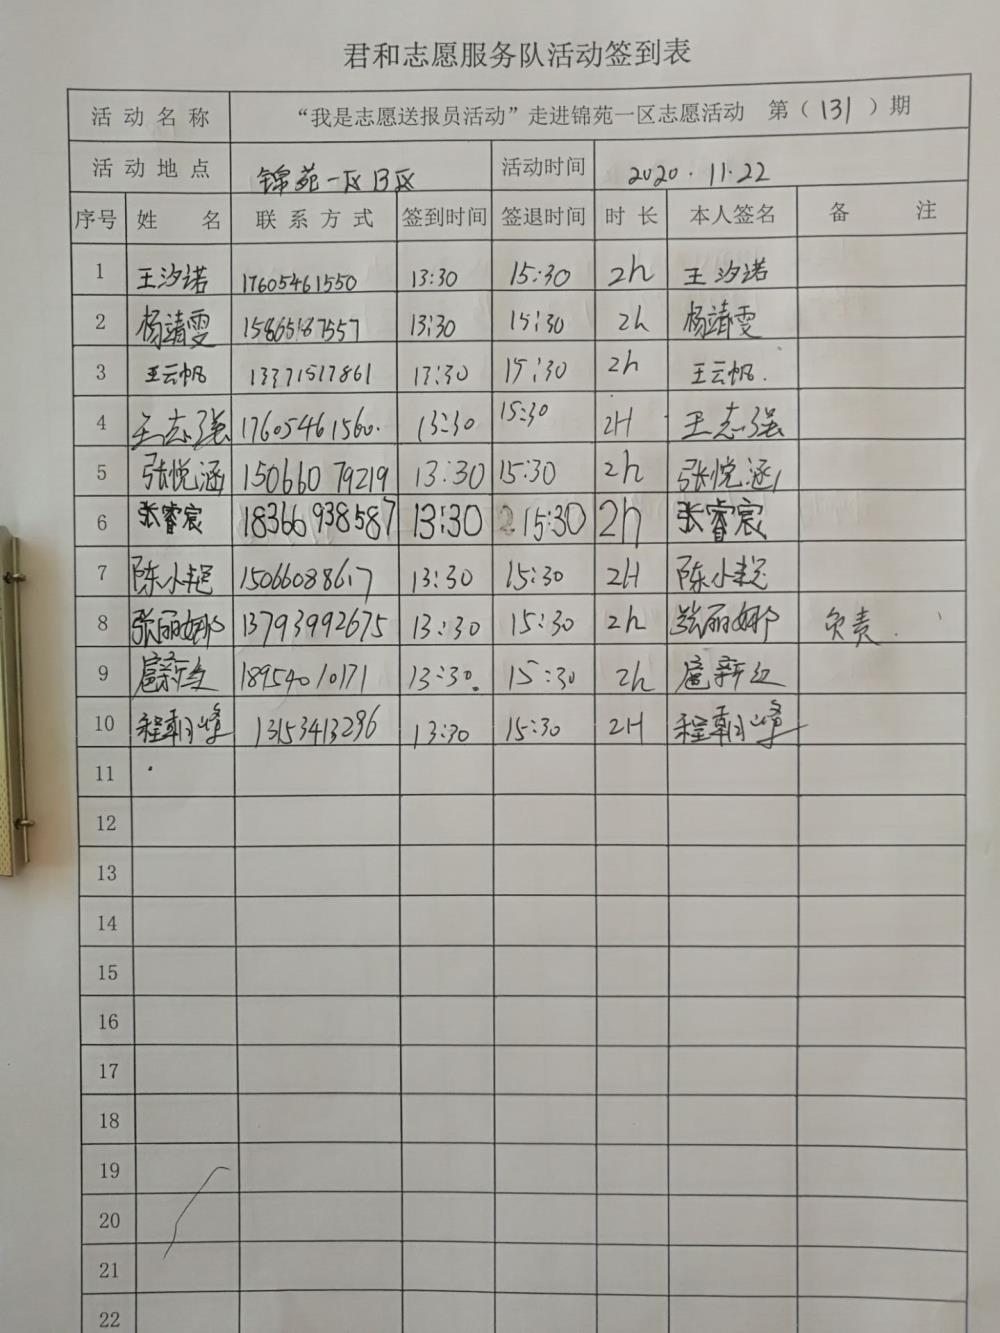 君和志愿服务队活动签到表
活动名称 “我是志愿送报员活动”走进锦苑一区志愿活动 第（131）期
活动地点 锦苑一区B区 活动时间 2020.11.22
序号 姓名 联系方式 签到时间 签退时间 时长 本人签名 备注
1 王汐诺 17605461550 13:30 15:30 2h 王汐诺
2 杨靖雯 15865187557 13:30 15:30 2h 杨靖雯
3 王云帆 13371517861 13:30 15:30 2h 王云帆.
4 王志强 17605461560. 13:30 15:30 2H 王志强
5 张悦涵 15066079219 13:30 15:30 2h 张悦涵
6 张睿宸 18366938587 13:30 15:30 2h 张睿宸
7 陈小超 15066088617 13:30 15:30 2H 陈小超
8 张丽娜 13793992675 13:30 15:30 2h 张丽娜 负责.
9 扈新 18954010171 13:30. 15:30 2h 扈新
10 程朝峰 13153413296 13:30 15:30 2H 程朝峰
11
12
13
14
15
16
17
18
19
20
21
22